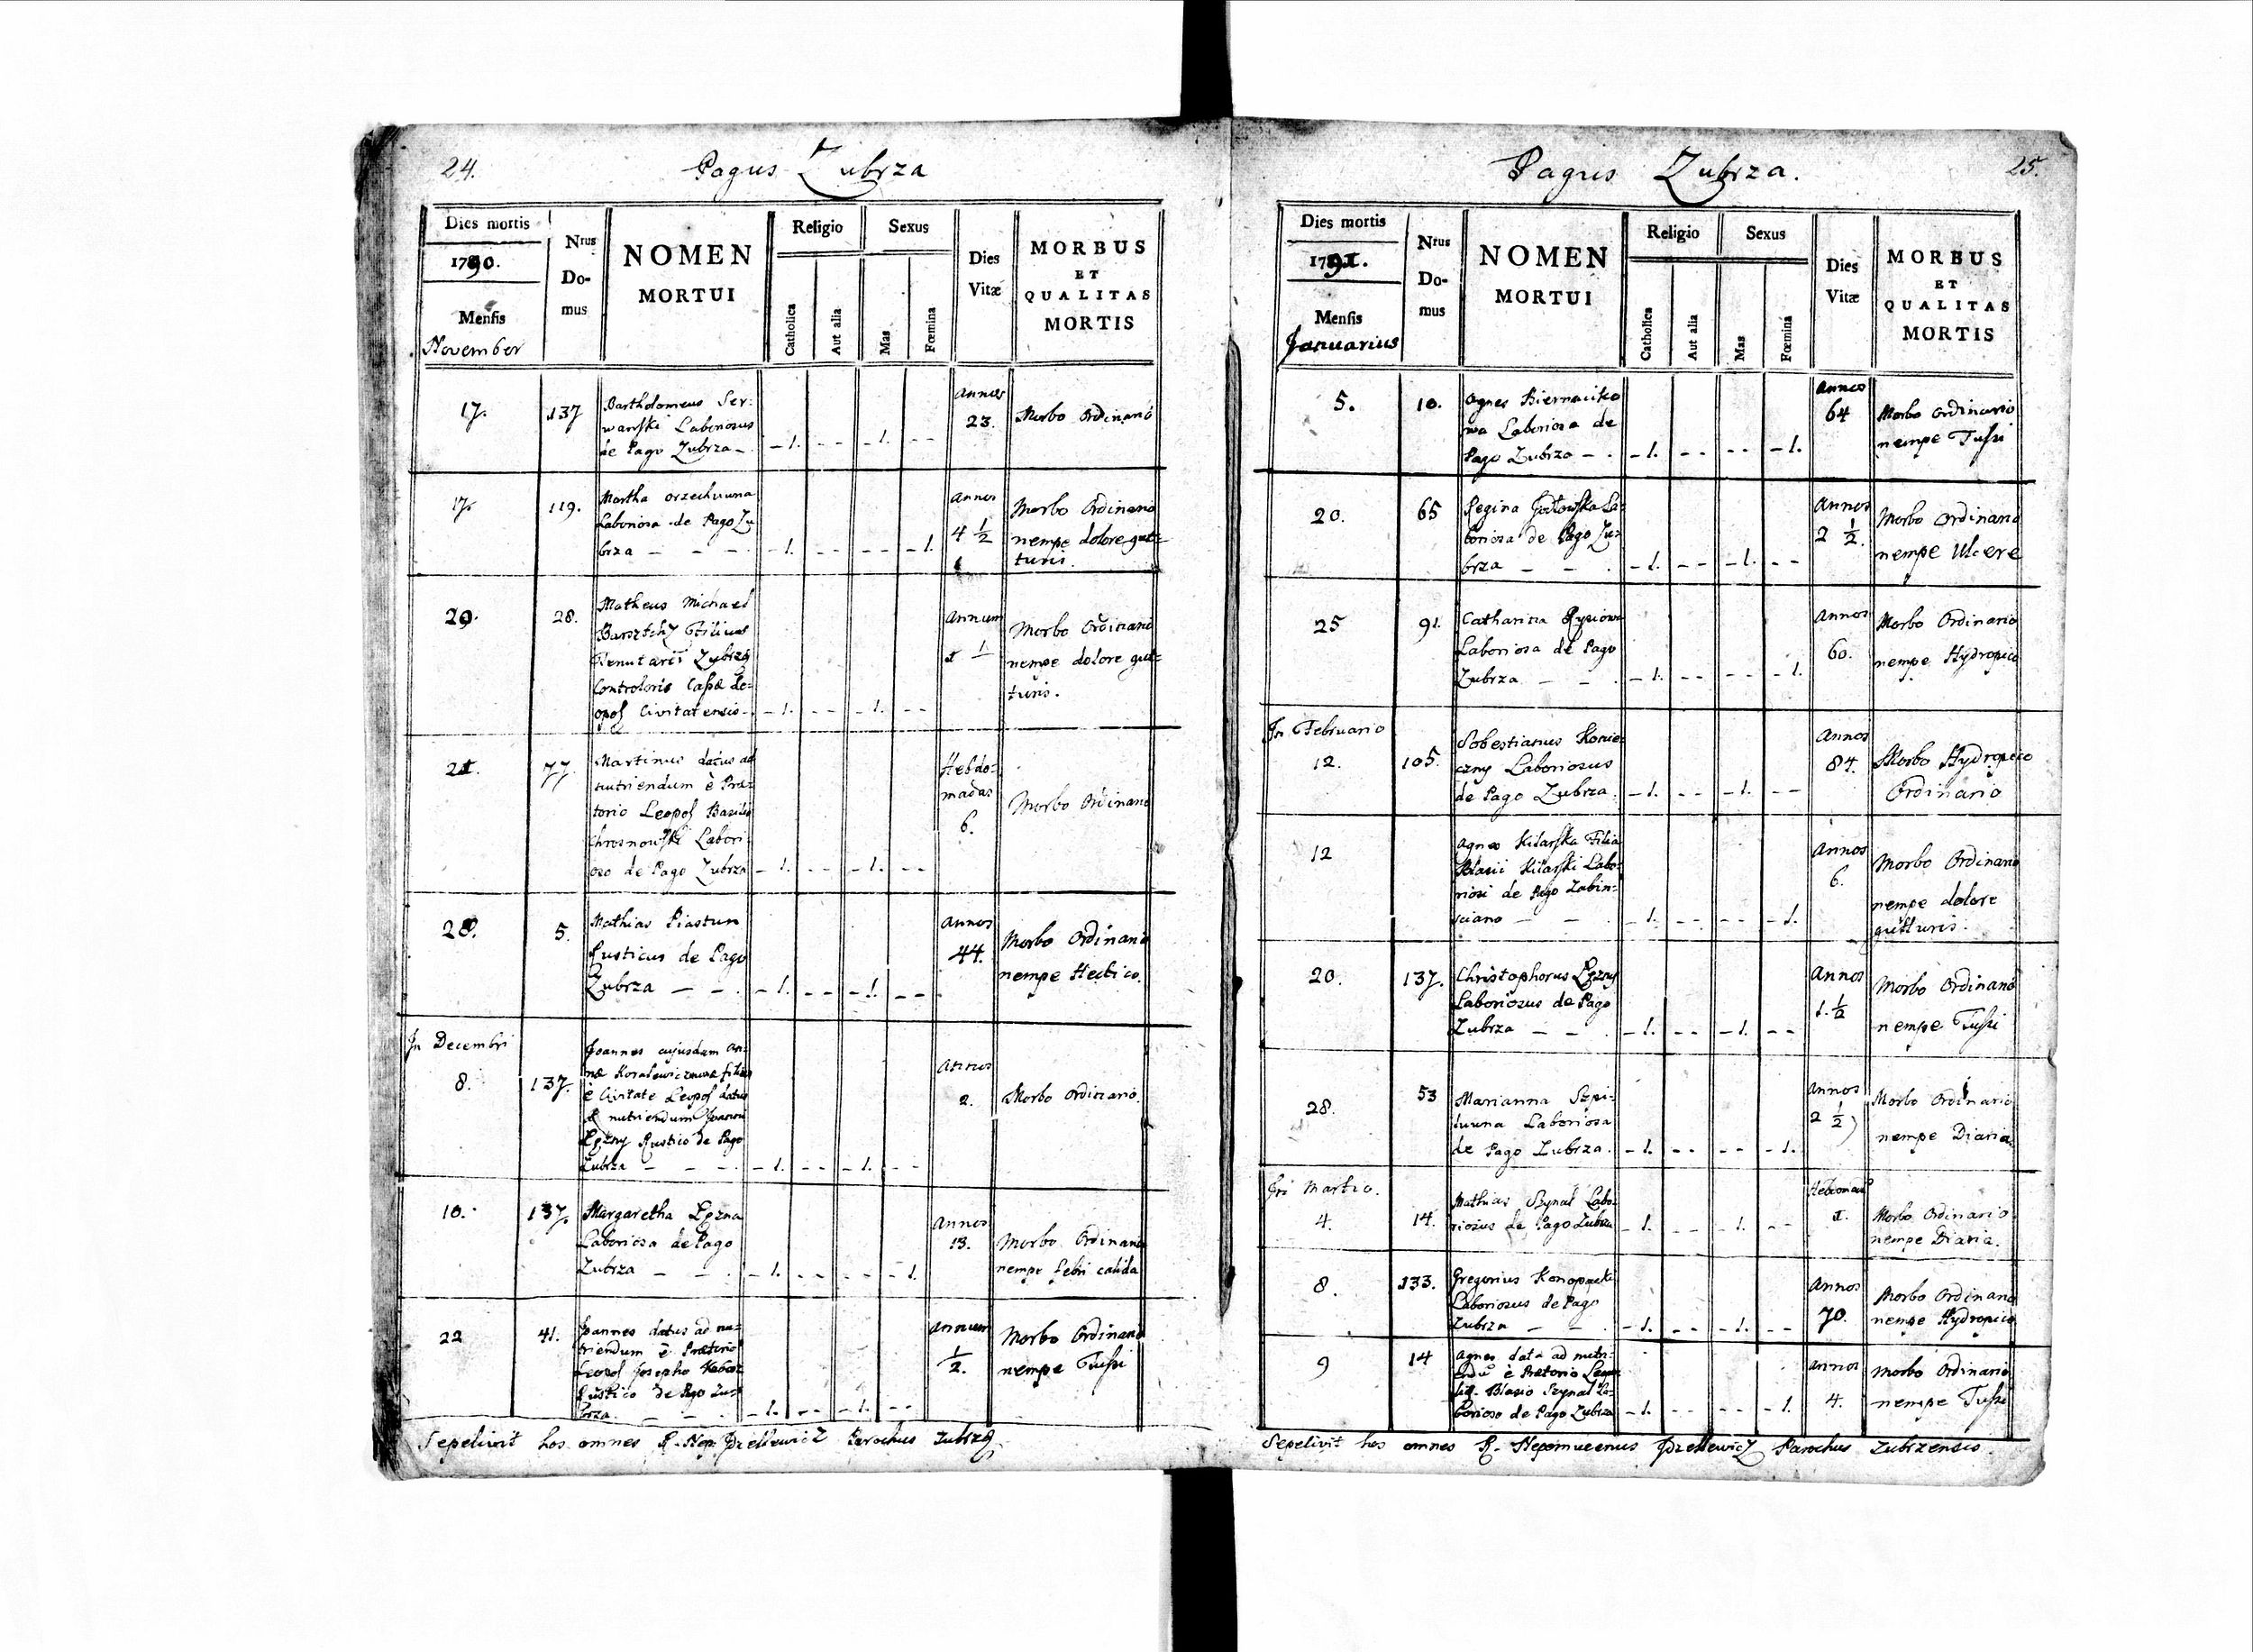 24.
Pagus Zubrza
Dies mortis
1790.
Mensis
November
Nrus
Do-
mus
NOMEN
MORTUI
Religio
Catholica
Aut alia
Sexus
Mas
Fœmina
Dies
Vitæ
MORBUS
ET
QUALITAS
MORTIS
17. 137 Bartholomeus Ser:
wanski Laboriosus
de Pago Zubrza – – 1. – – – 1. – – Annos
23. Morbo Ordinario
17. 119. Martha Orzechuwna
Laboriosa de Pago Zu
brza – – – – 1. – – – – – 1. Annos
4 1/2 Morbo Ordinario
nempe dolore gut:
turis.
29. 28. Matheus Michael
Filius
Tenutarii Zubrza
Controloris Cassæ Le:
opol Civitatensis – 1. – – – 1. – – Annum
1 Morbo Ordinario
nempe dolore gut:
turis.
21. 77. Martinus datus ad
nutriendum è Præ:
torio Leopol Basilio
Chrosnowski Labori
oso de Pago Zubrza – 1. – – – 1. – – Hebdo:
madas
6. Morbo Ordinario
28. 5. Mathias Piastun
Rusticus de Pago
Zubrza – – . – 1. – – – 1. – – Annos
44. Morbo Ordinario
nempe Hectico.
In Decembri
8. 137. Joannes cujusdam An:
næ filius
è Civitate Leopol datus
nutriendum
Rustico de Pago
Zubrza – – – . – 1. – – – 1. – – Annos
2. Morbo Ordinario.
10. 137. Margaretha
Laboriosa de Pago
Zubrza – – . – 1. – – – – – 1. Annos
13. Morbo Ordinario
nempe febri calida
22 41. Joannes datus ad nu:
triendum è Prætorio
Leopol Josepho
Rustico de Pago Zu:
brza. – – . – 1. – – – 1. – – Annum
1/2. Morbo Ordinario
nempe Tussi
Sepelivit hos omnes R. Nep. Jdzellewicz Parochus Zubrzę
25.
Pagus Zubrza.
Dies mortis
1791.
Mensis
Januarius
Nrus
Do-
mus
NOMEN
MORTUI
Religio
Catholica
Aut alia
Sexus
Mas
Fœminá
Dies
Vitæ
MORBUS
ET
QUALITAS
MORTIS
5. 10. Agnes Biernaciko
wa Laboriosa de
Pago Zubrza – . – 1. – – – – – 1. Annos
64 Morbo Ordinario
nempe Tussi
20. 65 Regina Godlowska La:
boriosa de Pago Zu:
brza – – . – 1. – – – 1. – – Annos
2 1/2. Morbo Ordinario
nempe Ulcere
25 91. Catharina Rysiowa
Laboriosa de Pago
Zubrza – – . – 1. – – – – – 1. Annos
60. Morbo Ordinario
nempe Hydropico
In Februario
12. 105. Sobestianus Konie:
czny Laboriosus
de Pago Zubrza. – 1. – – – 1. – – Annos
84. Morbo Hydropico
Ordinario
12 Agnes Kilarska Filia
Blasii Kilarski Labo:
riosi de Pago Zabin:
sciano – – . – 1. – – – – – 1. Annos
6. Morbo Ordinario
nempe dolore
gutturis.
20. 137. Christophorus
Laboriosus de Pago
Zubrza – – . – 1. – – – 1. – – Annos
1. 1/2 Morbo Ordinario
nempe Tussi
28. 53 Marianna Szpi:
tuwna Laboriosa
de Pago Zubrza. – 1. – – – – – 1. Annos
2 1/2 Morbo Ordinario
nempe Diaria.
In Martio.
4. 14. Mathias Szynal Labo:
riosus de Pago Zubrza – 1. – – – 1. – –
1. Morbo Ordinario
nempe Diaria.
8. 133. Gregorius Konopacki
Laboriosus de Pago
Zubrza – – . – 1. – – – 1. – – Annos
70. Morbo Ordinario
nempe Hydropico
9 14 Agnes data ad nutri:
endũ è Prætorio
Blasio Szynal La:
borioso de Pago Zubrza – 1. – – – – – 1. Annos
4. Morbo Ordinario
nempe Tussi
Sepelivit hos omnes R. Nepomucenus Jdzellewicz Parochus Zubrzensis.